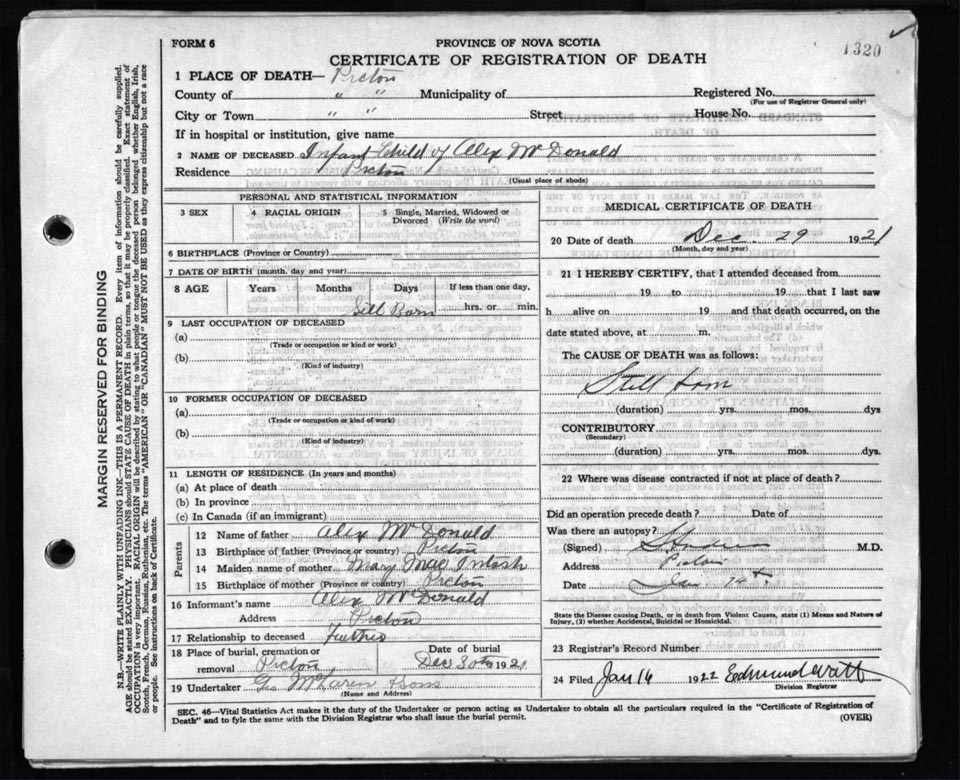 FORM 6
PROVINCE OF NOVA SCOTIA
1320
CERTIFICATE OF REGISTRATION OF DEATH
1 PLACE OF DEATH— Pictou
County of " " Municipality of Registered No.
(For use of Registrar General only)
City or Town " " Street House No.
If in hospital or institution, give name
2 NAME OF DECEASED Infant Child of Alex McDonald
Residence Pictou
(Usual place of abode)
PERSONAL AND STATISTICAL INFORMATION
3 SEX 4 RACIAL ORIGIN 5 Single, Married, Widowed or
Divorced (Write the word)
6 BIRTHPLACE (Province or Country)
7 DATE OF BIRTH (month, day and year)
8 AGE Years Months Days If less than one day,
Still Born hrs. or min.
9 LAST OCCUPATION OF DECEASED
(a)
(Trade or occupation or kind or work)
(b)
(Kind of industry)
10 FORMER OCCUPATION OF DECEASED
(a)
(Trade or occupation or kind of work)
(b)
(Kind of industry)
11 LENGTH OF RESIDENCE (In years and months)
(a) At place of death
(b) In province
(c) In Canada (if an immigrant)
Parents
12 Name of father Alex McDonald
13 Birthplace of father (Province or country) Pictou
14 Maiden name of mother Mary MacIntosh
15 Birthplace of mother (Province or country) Pictou
16 Informant's name Alex McDonald
Address Pictou
17 Relationship to deceased Father
18 Place of burial, cremation or Date of burial
removal Pictou Dec 30th 1921
19 Undertaker Geo McLaren & Sons
(Name and Address)
MEDICAL CERTIFICATE OF DEATH
20 Date of death Dec. 29 1921
(Month, day and year)
21 I HEREBY CERTIFY, that I attended deceased from
19 to 19 that I last saw
h alive on 19 and that death occurred, on the
date stated above, at m.
The CAUSE OF DEATH was as follows:
Still born
(duration) yrs. mos. dys
CONTRIBUTORY
(Secondary)
(duration) yrs. mos. dys.
22 Where was disease contracted if not at place of death?
Did an operation precede death? Date of
Was there an autopsy?
(Signed) M.D.
Address Pictou
Date
State the Disease causing Death, or in death from Violent Causes, state (1) Means and Nature of
Injury, (2) whether Accidental, Suicidal or Homicidal.
23 Registrar's Record Number
24 Filed Jan 16 1922 Edmund Watt
Division Registrar
SEC. 46—Vital Statistics Act makes it the duty of the Undertaker or person acting as Undertaker to obtain all the particulars required in the "Certificate of Registration of
Death" and to fyle the same with the Division Registrar who shall issue the burial permit.
(OVER)
MARGIN RESERVED FOR BINDING
N.B.—WRITE PLAINLY WITH UNFADING INK—THIS IS A PERMANENT RECORD. Every item of information should be carefully supplied.
AGE should be stated EXACTLY. PHYSICIANS should STATE CAUSE OF DEATH in plain terms, so that it may be properly classified. Exact statement of
OCCUPATION is very important. RACIAL ORIGIN will be described by stating to what people or tongue the deceased person belonged whether English, Irish,
Scotch, French, German, Russian, Ruthenian, etc. The terms "AMERICAN" OR "CANADIAN" MUST NOT BE USED as they express citizenship but not a race
or people. See instructions on back of Certificate.